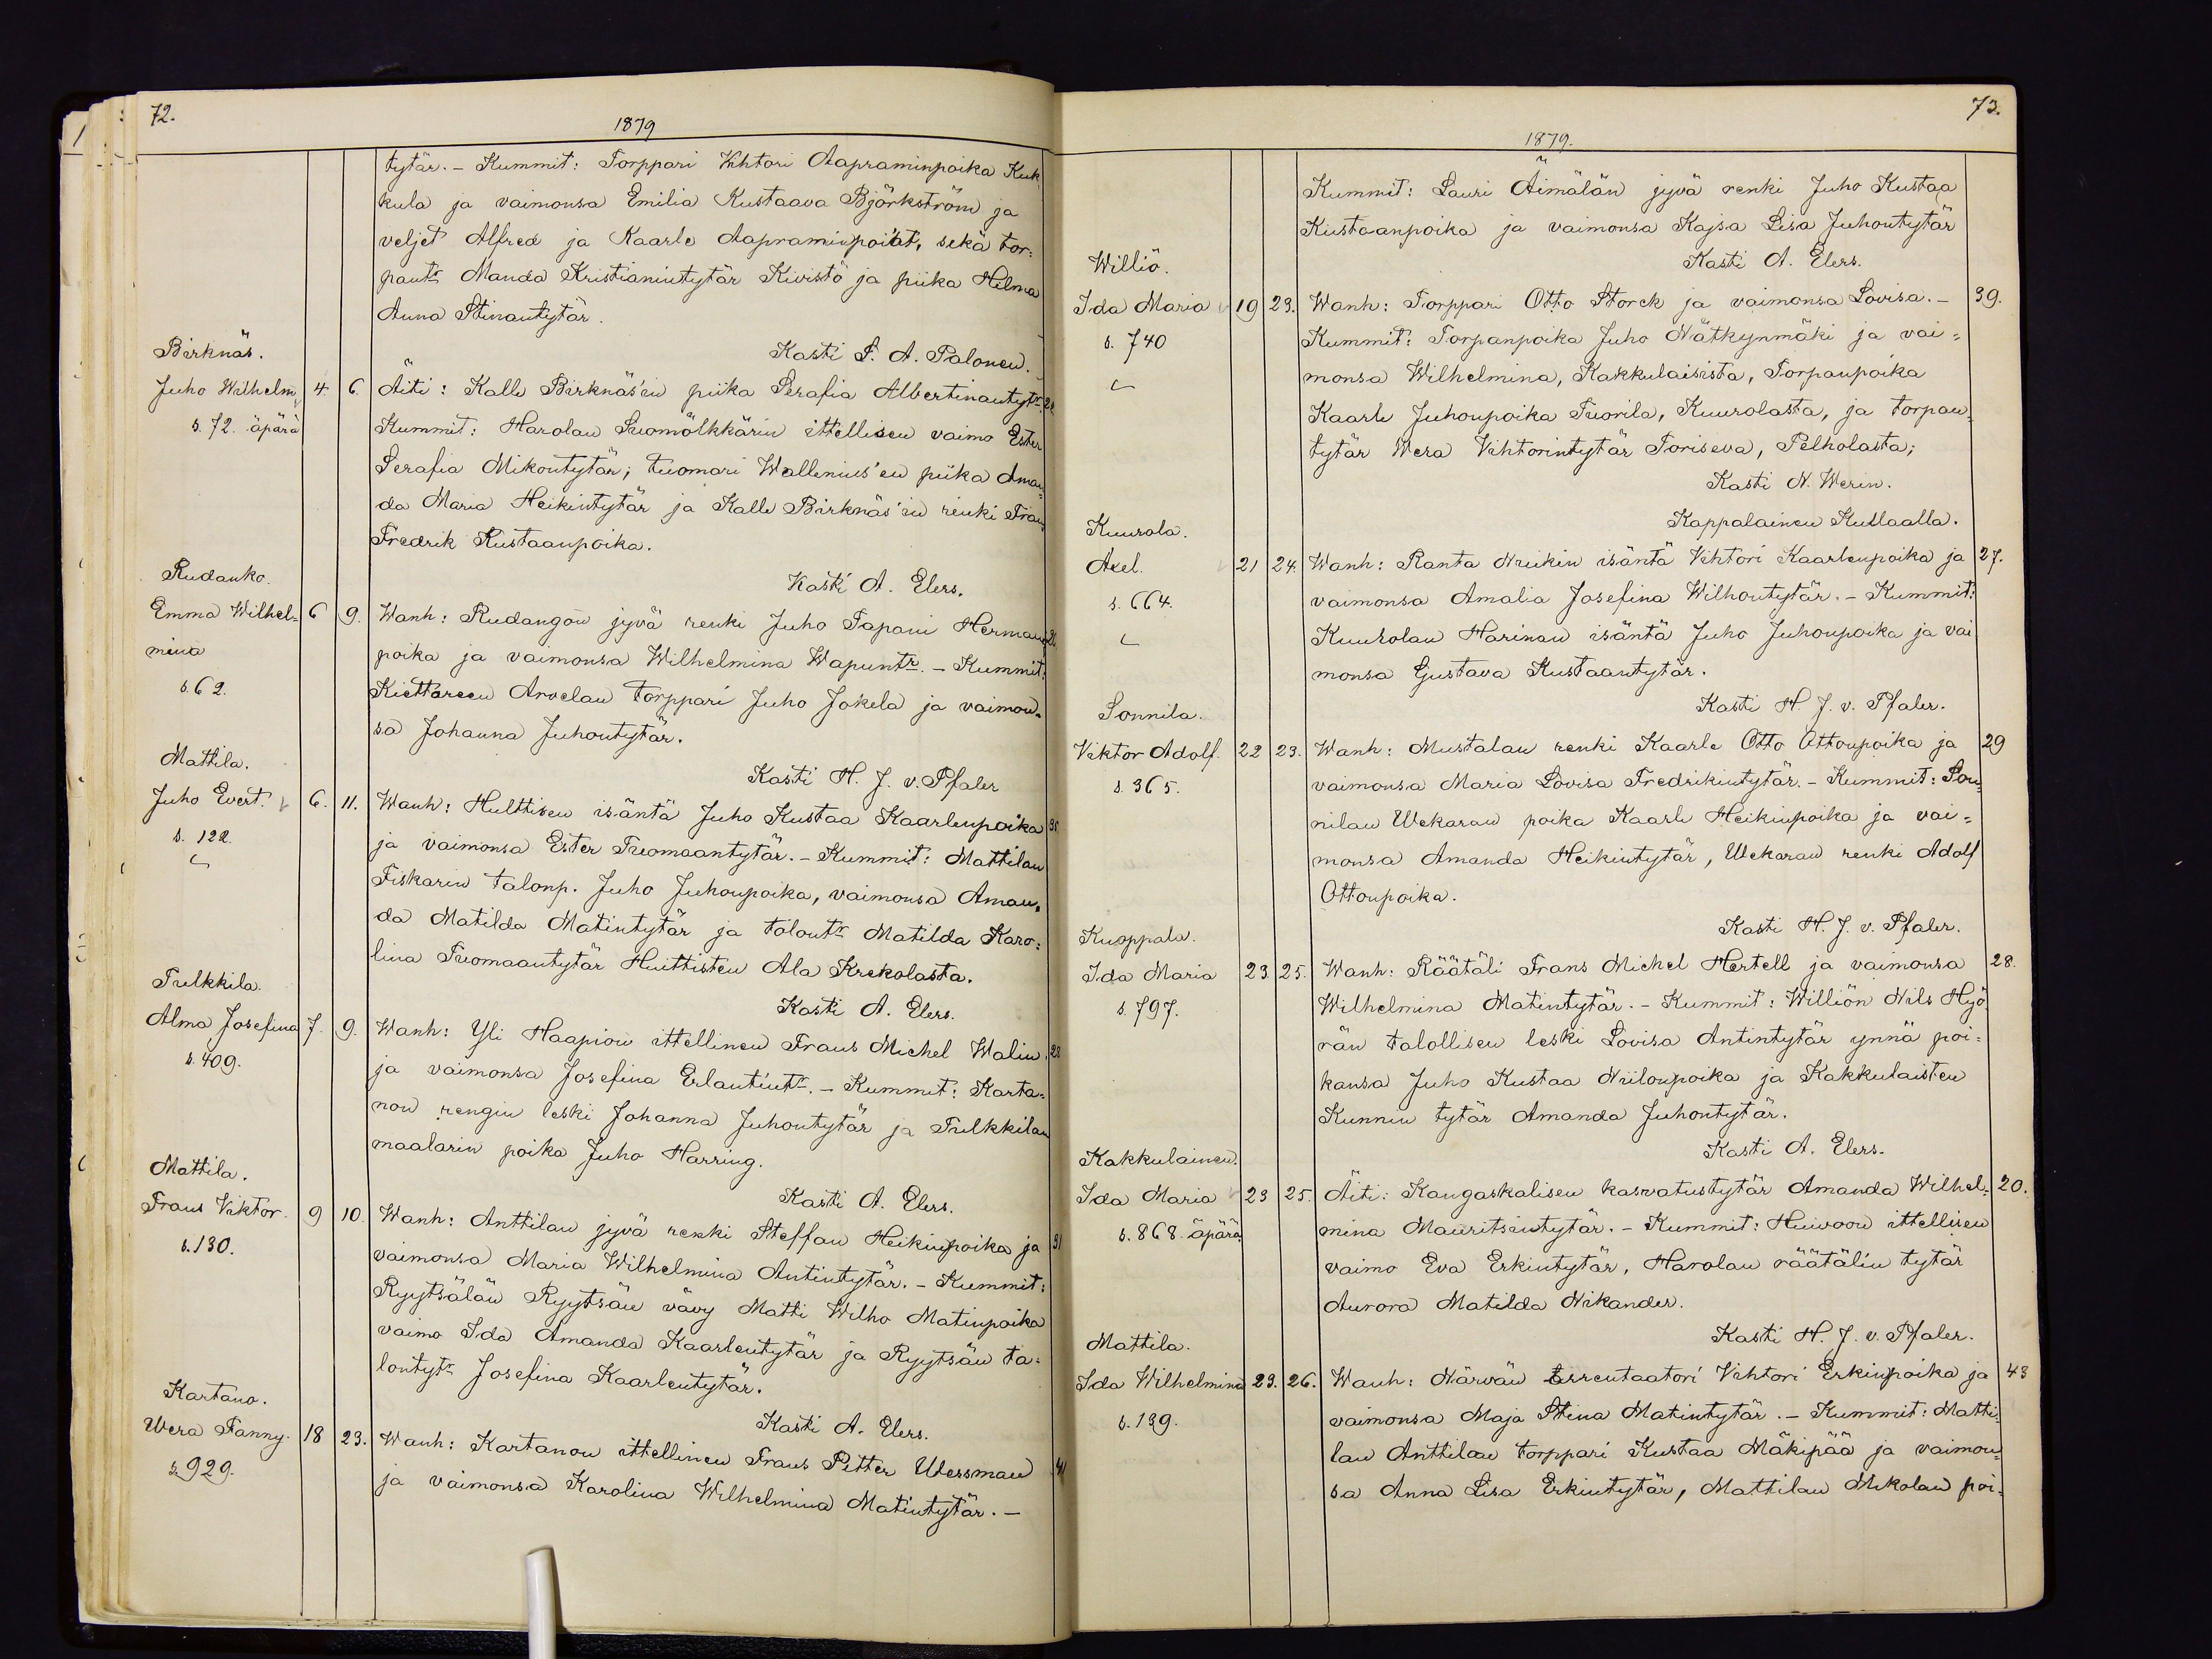 72.
1879
tytär. - Kummit: Torppari Vihtori Aapraminpoika Kuk
kula ja vaimonsa Emilia Kustaava Björkström ja
veljet Alfred ja Kaarle Aapraminpoiat, sekä tor=
pantr Manda Kristianintytär Kivistö ja piika Hilma
Anna Stinantytär.
Kasti F. A. Palonen.
Birknäs.
Juho Wilhelm 4. 6. Äiti: Kalle Birknäs'in piika Serafia Albertinantytr 22
s. 72. äpärä Kummit: Harolan Suomölkkärin ittellisen vaimo Ester
Serafia Mikontytär; tuomari Wallenius'en piika Aman=
da Maria Heikintytär ja Kalle Birknäs'in renki Frans
Fredrik Kustaanpoika.
Kasti A. Elers.
Rudanko.
Emma Wilhel= 6 9. Wanh: Rudangon jyvä renki Juho Tapani Herman
mina poika ja vaimonsa Wilhelmina Wapuntr. - Kummit:
s. 62. Kiettareen Arvelan torppari Juho Jokela ja vaimon=
sa Johanna Juhontytär.
Kasti H. J. v. Pfaler
Mattila.
Juho Evert. 6. 11. Wanh: Hulttisen isäntä Juho Kustaa Kaarlenpoika 35
s. 122. ja vaimonsa Ester Tuomaantytär. - Kummit: Mattilan
Fiskarin talonp. Juho Juhonpoika, vaimonsa Aman=
da Matilda Matintytär ja talontr Matilda Karo=
lina Tuomaantytär Huittisten Ala Krekolasta.
Kasti A. Elers.
Tulkkila.
Alma Josefina 7. 9. Wanh: Yli Haapion ittellinen Frans Michel Walin 28
s. 409. ja vaimonsa Josefina Erlantintr. - Kummit: Karta=
non rengin leski Johanna Juhontytär ja Tulkkilan
maalarin poika Juho Harring.
Kasti A. Elers.
Mattila.
Frans Viktor. 9 10. Wanh: Anttilan jyvä renki Steffan Heikinpoika ja 31
s. 130. vaimonsa Maria Wilhelmina Antintytär. - Kummit:
Ryytsälän Ryytsän vävy Matti Wilho Matinpoika
vaimo Ida Amanda Kaarlentytär ja Ryytsän ta=
lontytr Josefina Kaarlentytär.
Kasti A. Elers.
Kartano.
Wera Fanny. 18 23. Wanh: Kartanon ittellinen Frans Petter Wessman 41
s. 929. ja vaimonsa Karolina Wilhelmina Matintytär. -
73.
1879.
Kummit: Lauri Äimälän jyvä renki Juho Kustaa
Kustaanpoika ja vaimonsa Kajsa Lisa Juhontytär
Kasti A. Elers.
Williö.
Ida Maria 19 23. Wanh: Torppari Otto Storck ja vaimonsa Lovisa. - 39.
s. 740 Kummit: Torpanpoika Juho Nätkynmäki ja vai=
monsa Wilhelmina, Kakkulaisista, Torpanpoika
Kaarle Juhonpoika Tuorila, Kuurolasta, ja torpan=
tytär Wera Vihtorintytär Toriseva, Pelholasta;
Kasti N. Werin.
Kappalainen Kullaalla.
Kuurola.
Axel. 21 24. Wanh: Ranta Nuikin isäntä Vihtori Kaarlenpoika ja 27.
s. 664. vaimonsa Amalia Josefina Wilhontytär. - Kummit:
Kuurolan Harinan isäntä Juho Juhonpoika ja vai
monsa Gustava Kustaantytär.
Kasti H. J. v. Pfaler.
Sonnila.
Viktor Adolf. 22 23. Wanh: Mustalan renki Kaarle Otto Ottonpoika ja 29
s. 365. vaimonsa Maria Lovisa Fredrikintytär. - Kummit: Son=
nilan Uckaran poika Kaarle Heikinpoika ja vai=
monsa Amanda Heikintytär, Uckaran renki Adolf
Ottonpoika.
Kasti H. J. v. Pfaler.
Kuoppala.
Ida Maria 23. 25. Wanh: Räätäli Frans Michel Hertell ja vaimonsa 28.
s. 797. Wilhelmina Matintytär. - Kummit: Williön Nils Hyö
rän talollisen leski Lovisa Antintytär ynnä poi=
kansa Juho Kustaa Niilonpoika ja Kakkulaisten
Kunnin tytär Amanda Juhontytär.
Kasti A. Elers.
Kakkulainen.
Ida Maria 23 25. Äiti: Kangaskalisen kasvatustytär Amanda Wilhel= 20.
s. 868. äpärä. mina Mauritsintytär. - Kummit: Huivoon ittellisen
vaimo Eva Erkintytär, Harolan räätälin tytär
Aurora Matilda Nikander.
Kasti H. J. v. Pfaler.
Mattila.
Ida Wilhelmina 23. 26. Wanh: Närvän arrentaatori Vihtori Erkinpoika ja 43
s. 139. vaimonsa Maja Stina Matintytär. - Kummit: Matti=
lan Anttilan torppari Kustaa Mäkipää ja vaimon=
sa Anna Lisa Erkintytär, Mattilan Mikolan poi=